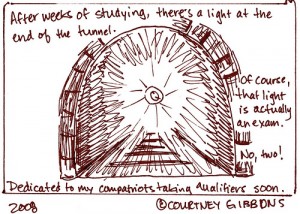 After weeks of studying, there's a light at the
end of the tunnel.
Of course,
that light
is actually
an exam.
No, two!
Dedicated to my compatriots taking qualifiers soon.
2008 ©COURTNEY GIBBONS